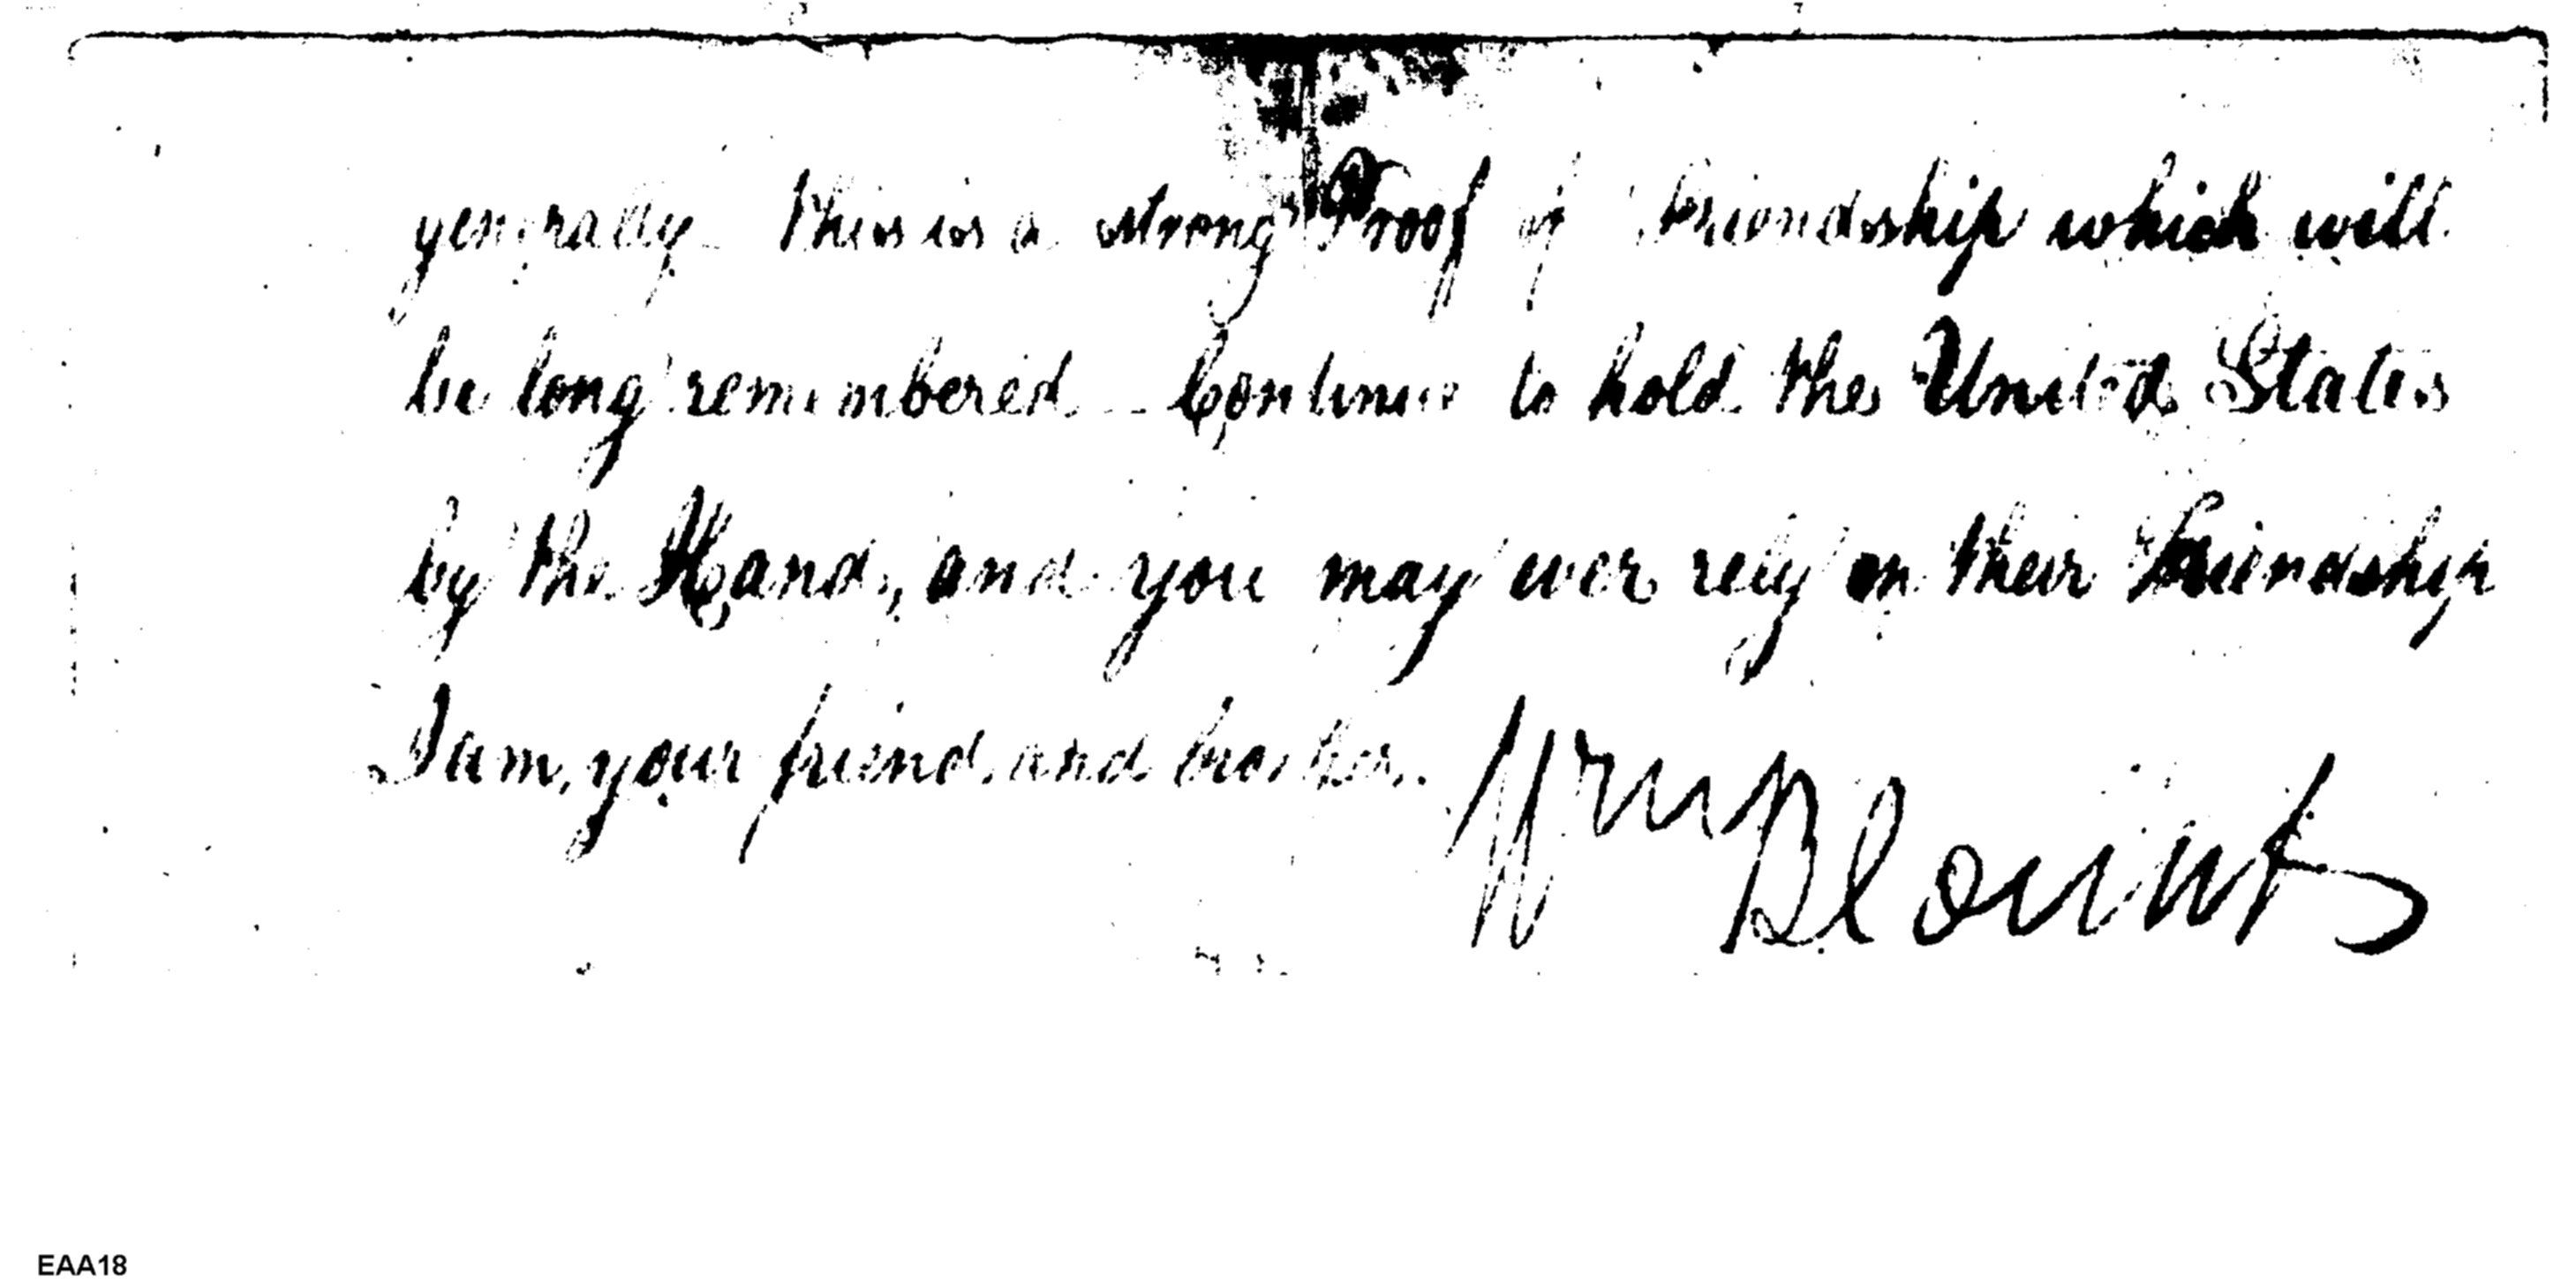 generally. This is a strong Proof of Friendship which will
be long remembered – Continue to hold the United States
by the Hand, and you may ever rely on their Friendship
I am, your friend and brother.
Wm Blount
EAA18